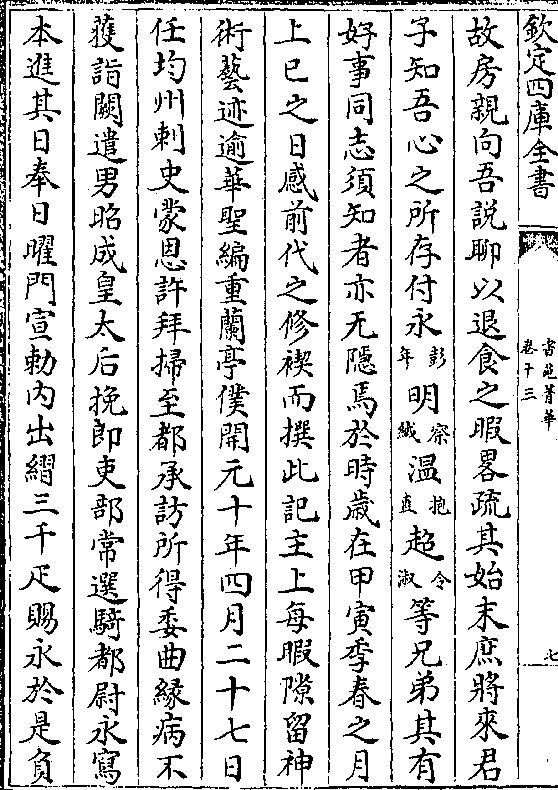 欽定四庫全書
書苑菁華
卷十三
七
故房親向吾說聊以退食之暇畧疏其始末庶將來君
子知吾心之所存付永彭年明察緘温抱直超令淑等兄弟其有
好事同志須知者亦无隱焉於時歲在甲寅季春之月
上巳之日感前代之修禊而撰此記主上每暇隙留神
術藝迹逾華聖編重蘭亭僕開元十年四月二十七日
任均州刺史蒙恩許拜掃至都承訪所得委曲緣病不
獲詣闕遣男昭成皇太后挽郎吏部常選騎都尉永寫
本進其日奉日曜門宣勅内出絹三千疋賜永於是負